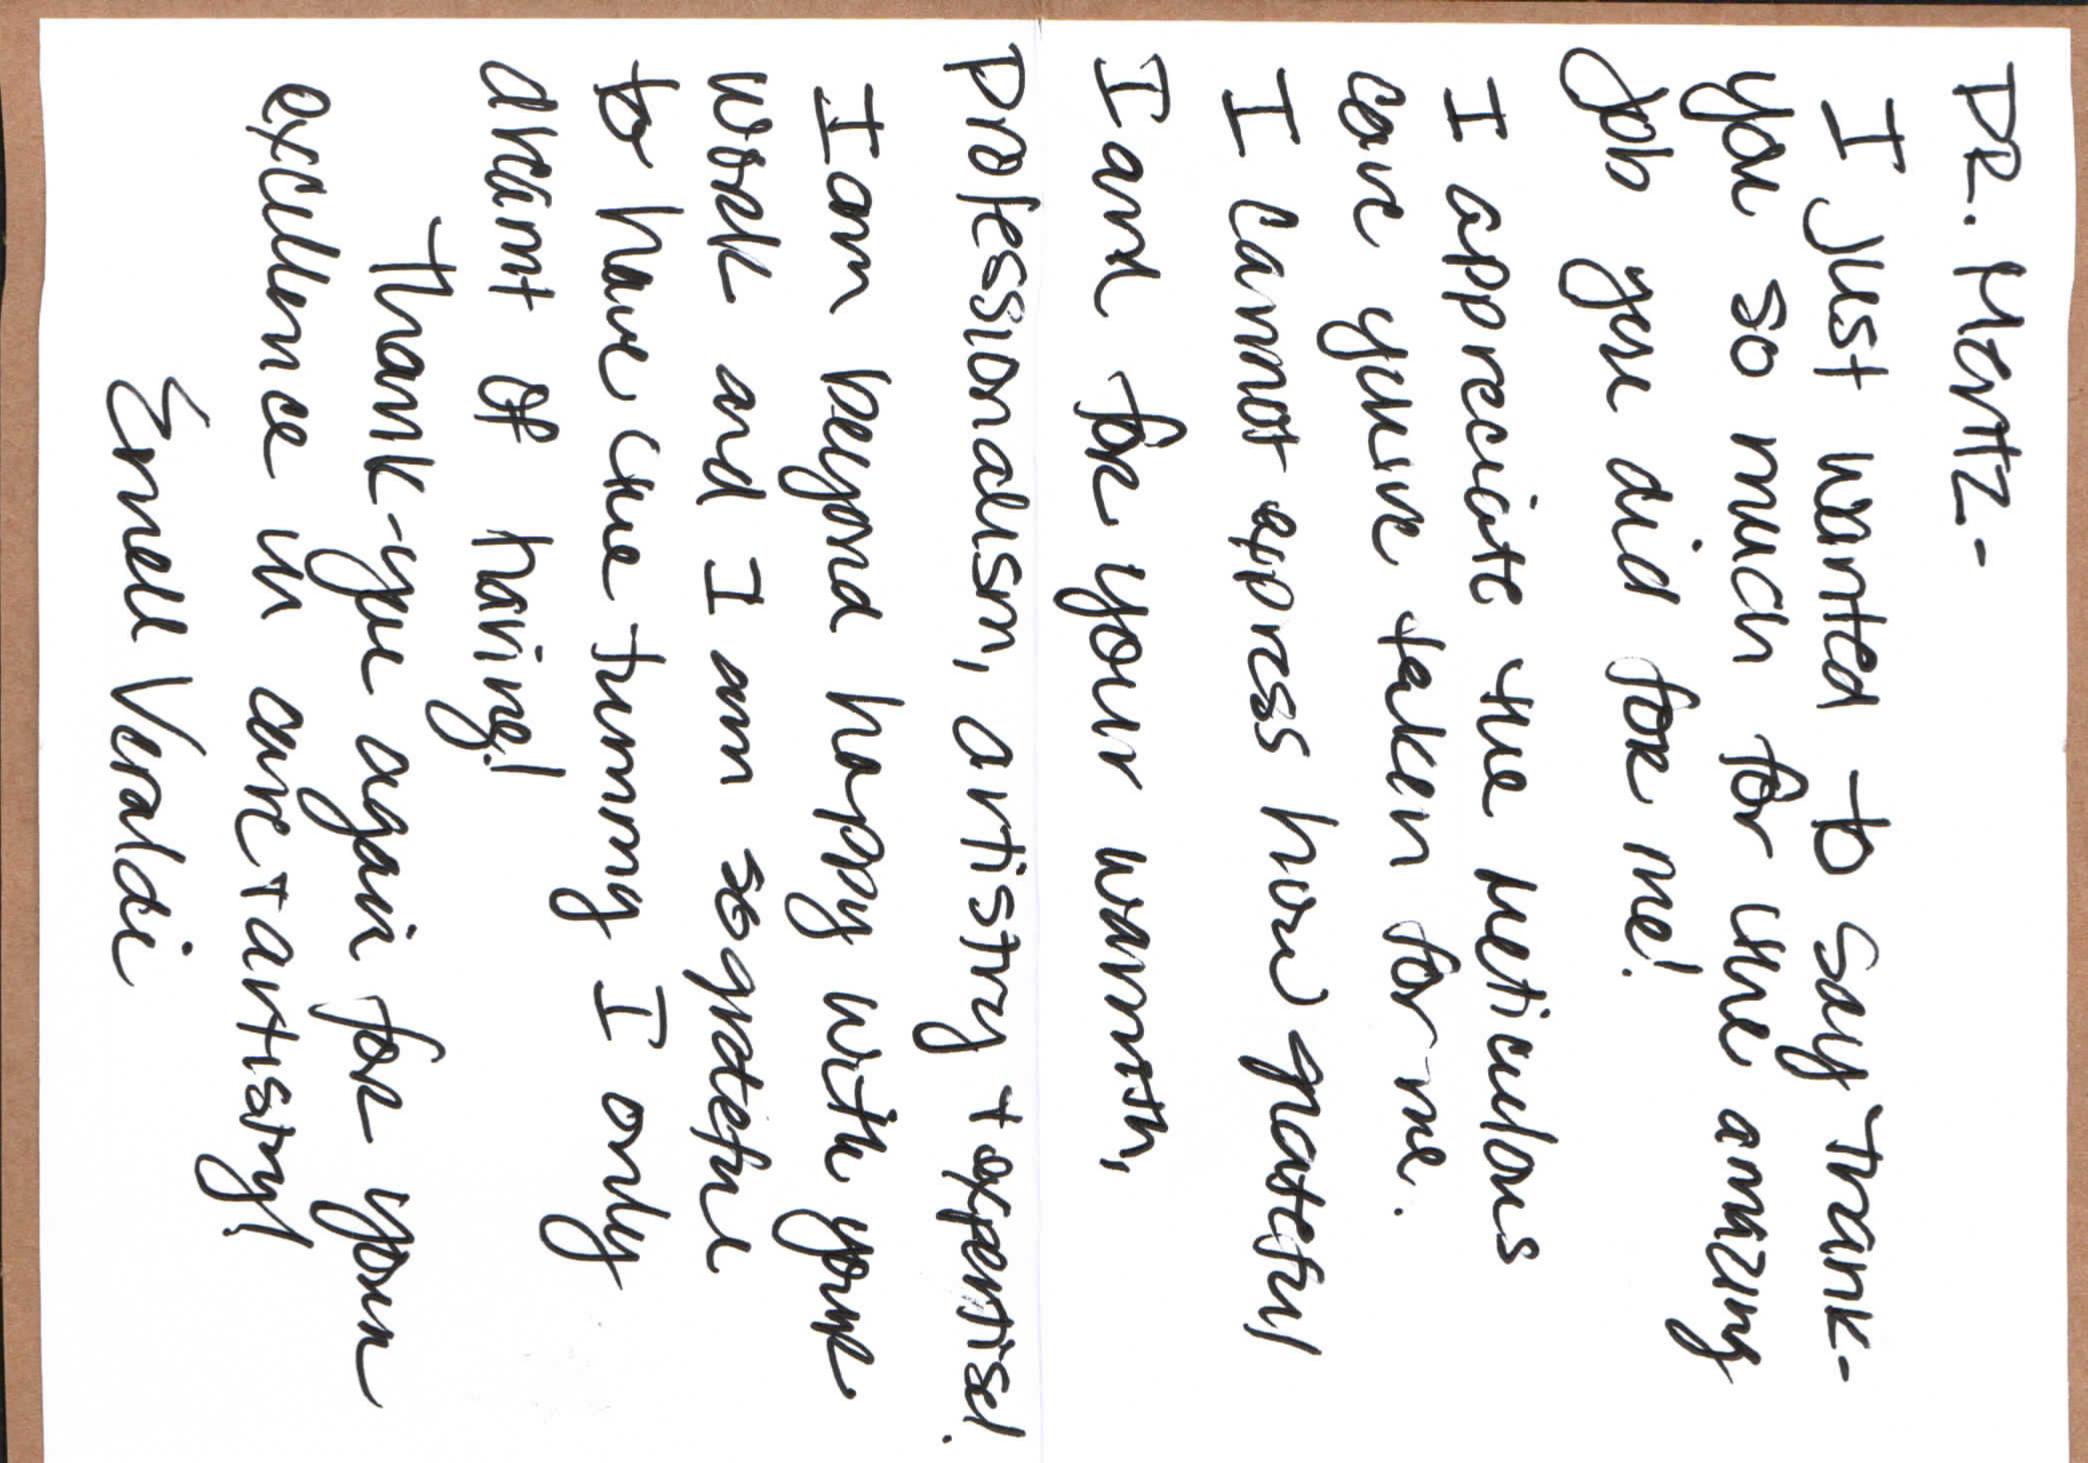 DR. Mentz-
I just wanted to say thank-
you so much for the amazing
job you did for me!
I appreciate the meticulous
care you've taken for me.
I cannot express how grateful
I am for your warmth,
professionalism, artistry + expertise!
I am beyond happy with your
work and I am so grateful
to have the tummy I only
dreamt of having!
Thank-you again for your
excellence in care + artistry!
Ernell Veraldi